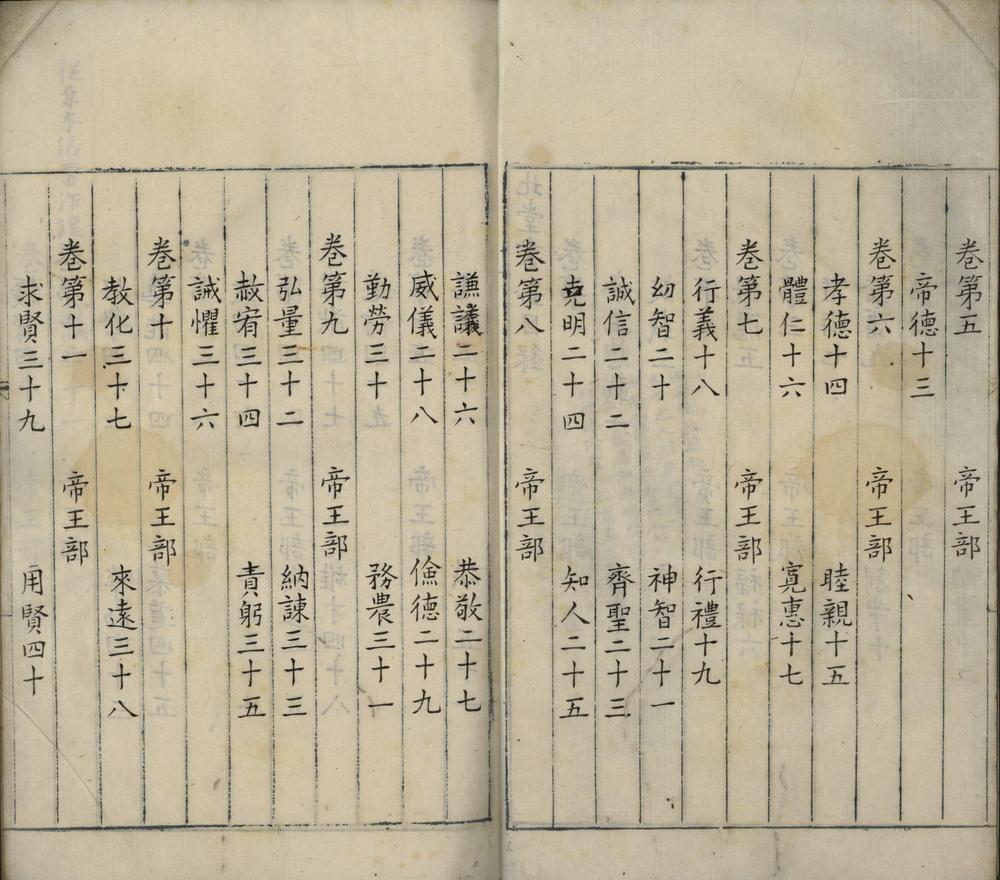 卷第五　帝王部
帝德十三
卷第六　帝王部
孝德十四　睦親十五
體仁十六　寬惠十七
卷第七　帝王部
行義十八　行禮十九
幼智二十　神智二十一
誠信二十二　齊聖二十三
克明二十四　知人二十五
卷第八　帝王部
謙議二十六　恭敬二十七
威儀二十八　儉德二十九
勤勞三十　務農三十一
卷第九　帝王部
弘量三十二　納諫三十三
赦宥三十四　責躬三十五
誡懼三十六
卷第十　帝王部
教化三十七　來遠三十八
卷第十一　帝王部
求賢三十九　用賢四十